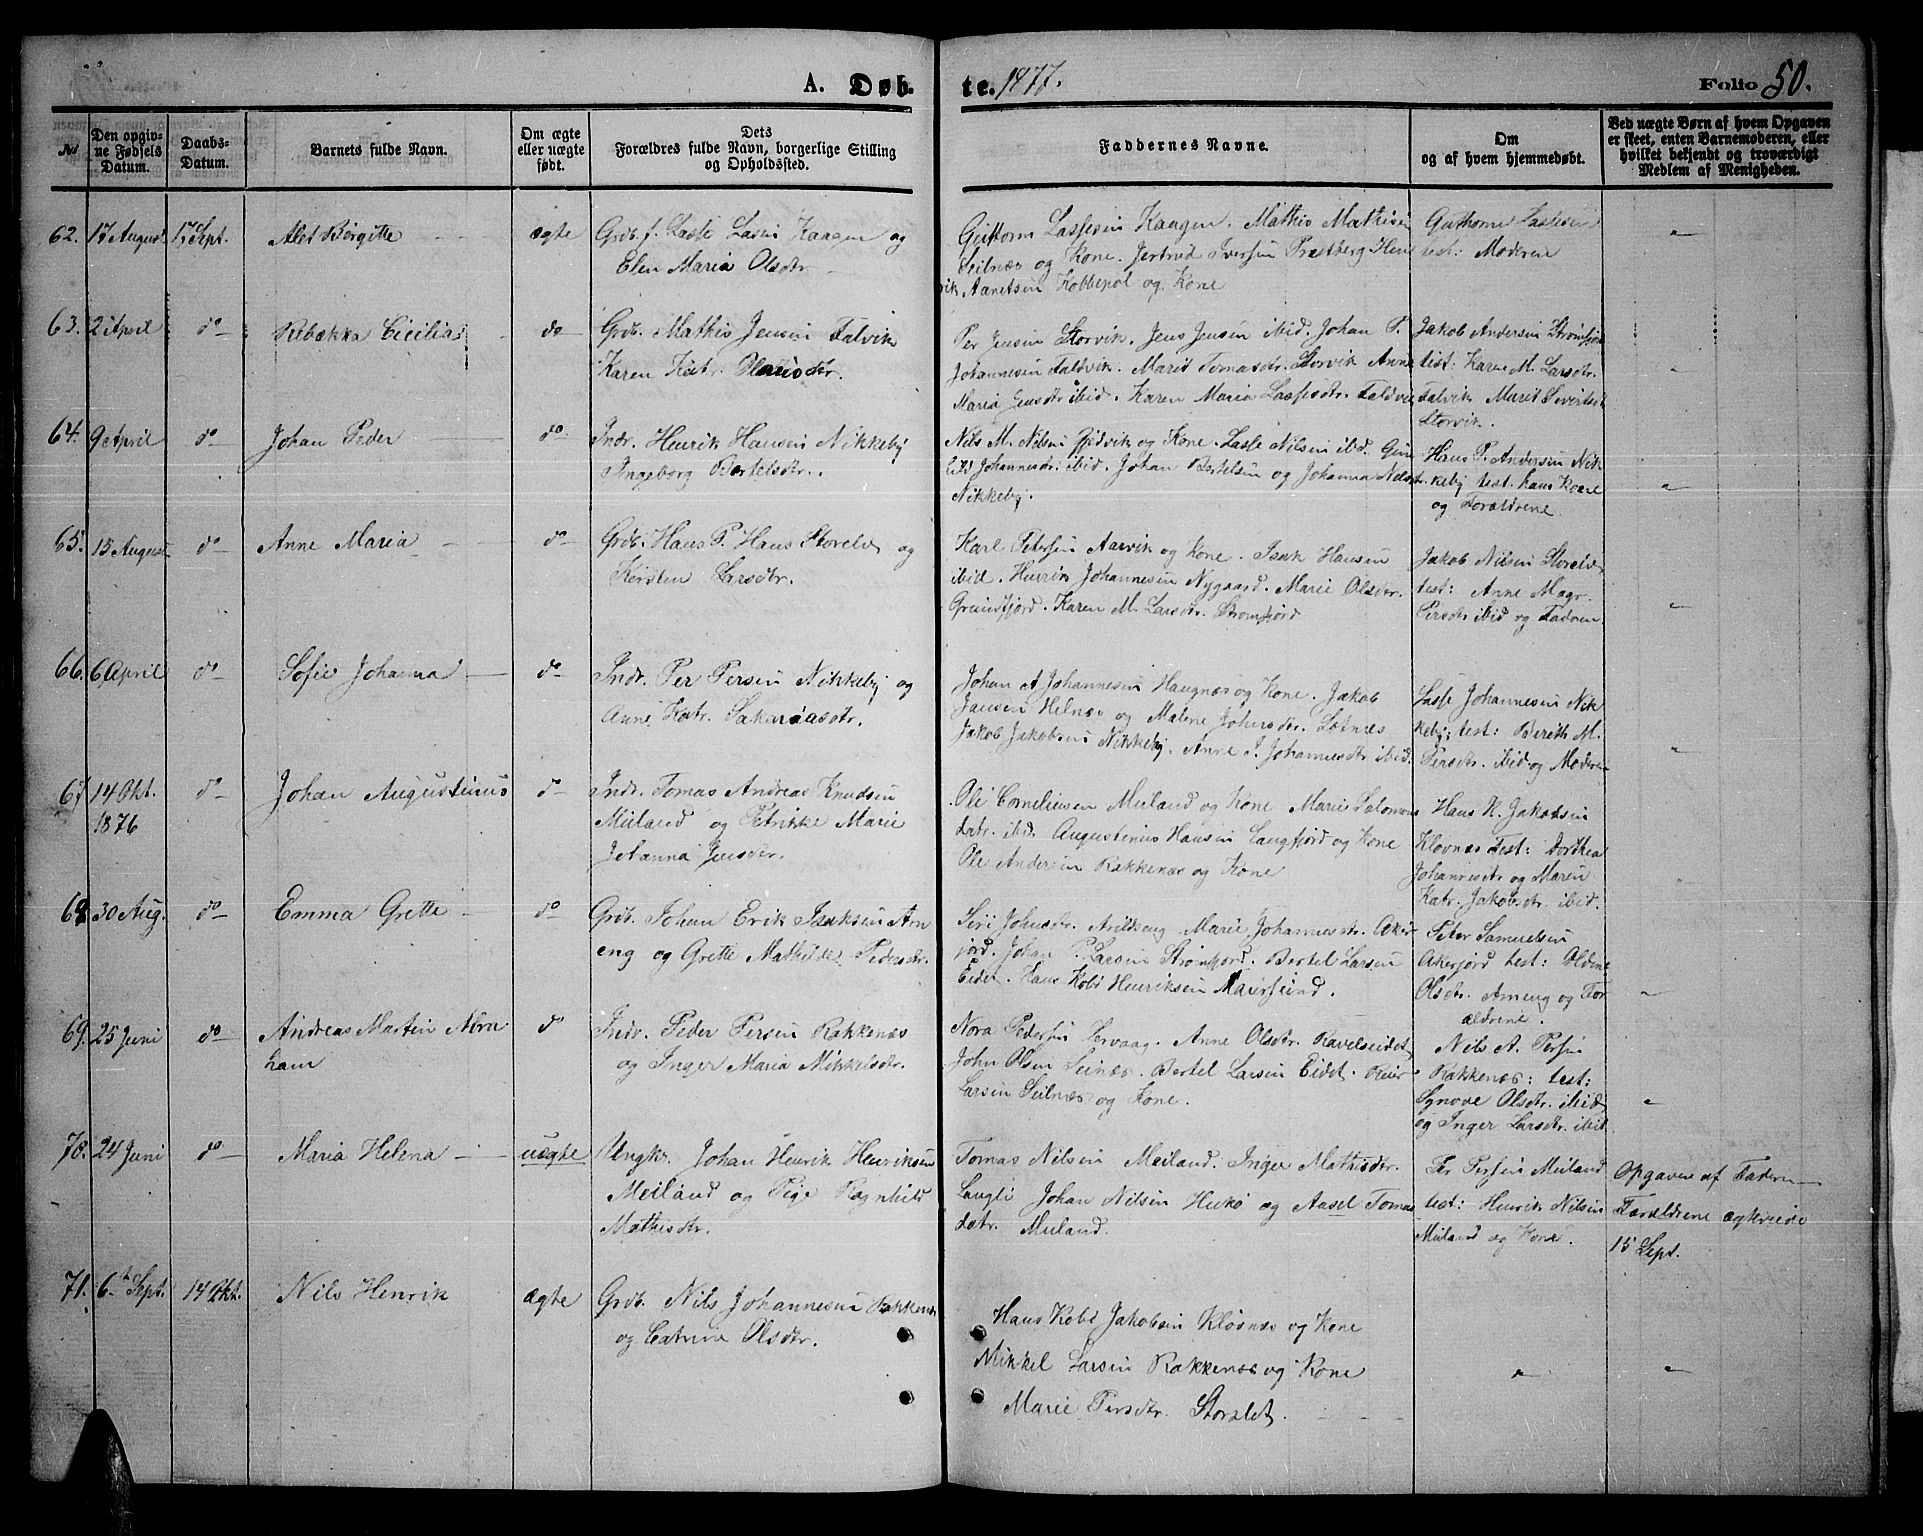 A. Døb-
te. 1877.
Folio 50.
No
Den opgiv-
ne Fødsels
Datum.
Daabs-
Datum.
Barnets fulde Navn.
Om ægte
eller uægte
født.
Dets
Forældres fulde Navn, borgerlige Stilling
og Opholdssted.
Faddernes Navne.
Om
og af hvem hjemmedøbt.
Ved uægte Børn af hvem Opgaven
er skeet, enten Barnemoderen, eller
hvilket bekjendt og troværdigt
Medlem af Menigheden.
62. 17 August 17 Sept.
Alet Birgitte
ægte
Grdb. f. Lasse Lasen Kaagen og
Elen Maria Olsdtr
Guttorm Lassesen Kaagen. Mathis Mathisen
Seilnæs og Kone. Jertrud Iversen Præstberg Hen
rik Aanetsen Kobbepol og Kone
Guthorm Lassesen
test: Moderen
"
63. 2 April do
Rebækka Cicilia
do
Grdb. Mathis Jensen Talvik
Karen Katr. Olausdtr.
Per Jensen Storvik. Jens Jensen ibid. Johan P.
Johannesen Taldvik. Marit Tomasdtr. Storvik Anne
Maria Jensdtr ibid. Karen Maria Lassesdtr. Taldvik
Jakob Andersen Strømfjord
test: Karen M. Larsdtr.
Talvik Marit Sivertsdtr
Storvik.
"
64. 9 April do
Johan Peder
do
Indr. Henrik Hansen Nikkeby
Ingeborg Bertelsdtr.
Nils M. Nilsen Gjidvik og Kone. Lasse Nilsen ibid. Gun
hild Johannesdtr. ibid. Johan Bertelsen og Johanna Nilsdtr.
Nikkeby.
Hans P. Andersen Nik
keby test. hans Kone
og Forældrene
"
65. 15 August do
Anne Maria
do
Grdb. Hans P. Hans Storelv og
Kirsten Larsdtr.
Karl Petersen Aarvik og Kone. Isak Hansen
ibid. Henrik Johannesen Nygaard. Marie Olsdtr.
Grundfjord. Karen M. Larsdtr. Strømfjord
Jakob Nilsen Storelv
test: Anne Magr.
Persdtr ibid og Fadren
"
66. 6 April do
Sofie Johanna
do
Indr. Per Persen Nikkeby og
Anne Katr. Sakariasdtr.
Johan A Johannesen Haugnæs og Kone. Jakob
Jansen Helnæs og Malene Johnsdtr. Løtnæs
Jakob Jakobsen Nikkeby. Anne J. Johannesdtr ibid.
Lasse Johannesen Nik
keby; test: Bereth M.
Persdtr. ibid og Moderen
"
67 14 Okt. do
1876
Johan Augustinus
do
Indr. Tomas Andreas Knudsen
Meiland og Petrikke Marie
Johanna Jensdtr.
Ole Corneliusen Meiland og Kone Marie Salomons
datr. ibid. Augustinus Hansen Langfjord og Kone
Ole Andersen Rakkenæs og Kone
Hans H. Jakobsen
Kløvnæs Test: Dorthea
Johannesdtr og Maren
Katr. Jakobsdtr. ibid.
68 30 Aug. do
Emma Grette
do
Grdb. Johan Erik Isaksen Arn
eng og Grette Mathilde Pedersdtr.
Siri Johnsdtr. Arildseng. Marie Johannesdtr. Aker
fjord. Johan P. Larsen Strømfjord. Bertel Larsen
Eidet. Hans Kobs Henriksen Maursund.
Peter Samuelsen
Akerfjord test: Oldine
Olsdtr. Arneng og For
ældrene.
"
69. 25 Juni do
Andreas Martin Abra
ham
do
Indr. Peder Persen Rakkenæs
og Inger Maria Mikkelsdtr.
Nora Pedersen Lervaag. Anne Olsdtr. Ravelseidet
John Olsen Seinæs. Bertel Larsen Eidet. Reier
Larsen Seilnæs og Kone.
Nils A. Persen
Rakkenæs: test:
Synove Olsdtr. ibid
og Inger Larsdtr. ibid.
"
70. 24 Juni do
Maria Helena
uægte
Ungkr. Johan Henrik Henriksen
Meiland og Pige Ragnhild
Mathisdtr.
Tomas Nilsen Meiland. Inger Mathisdtr.
Langli Johan Nilsen Hukø og Aasel Tomas
datr. Meiland.
Per Persen Meiland
test: Henrik Nilsen
Meiland og Kone.
Opgaven af Faderen
Forældrene ægteviede
15 Sept.
71. 6te Sept. 14 Okt.
Nils Henrik
ægte
Grdb. Nils Johannesen Rakkenæs
og Catrine Olsdtr.
Hans Kobs Jakobsen Kløvnæs og Kone
Mikkel Larsen Rakkenæs og Kone
Marie Persdtr. Storslet.
"
"